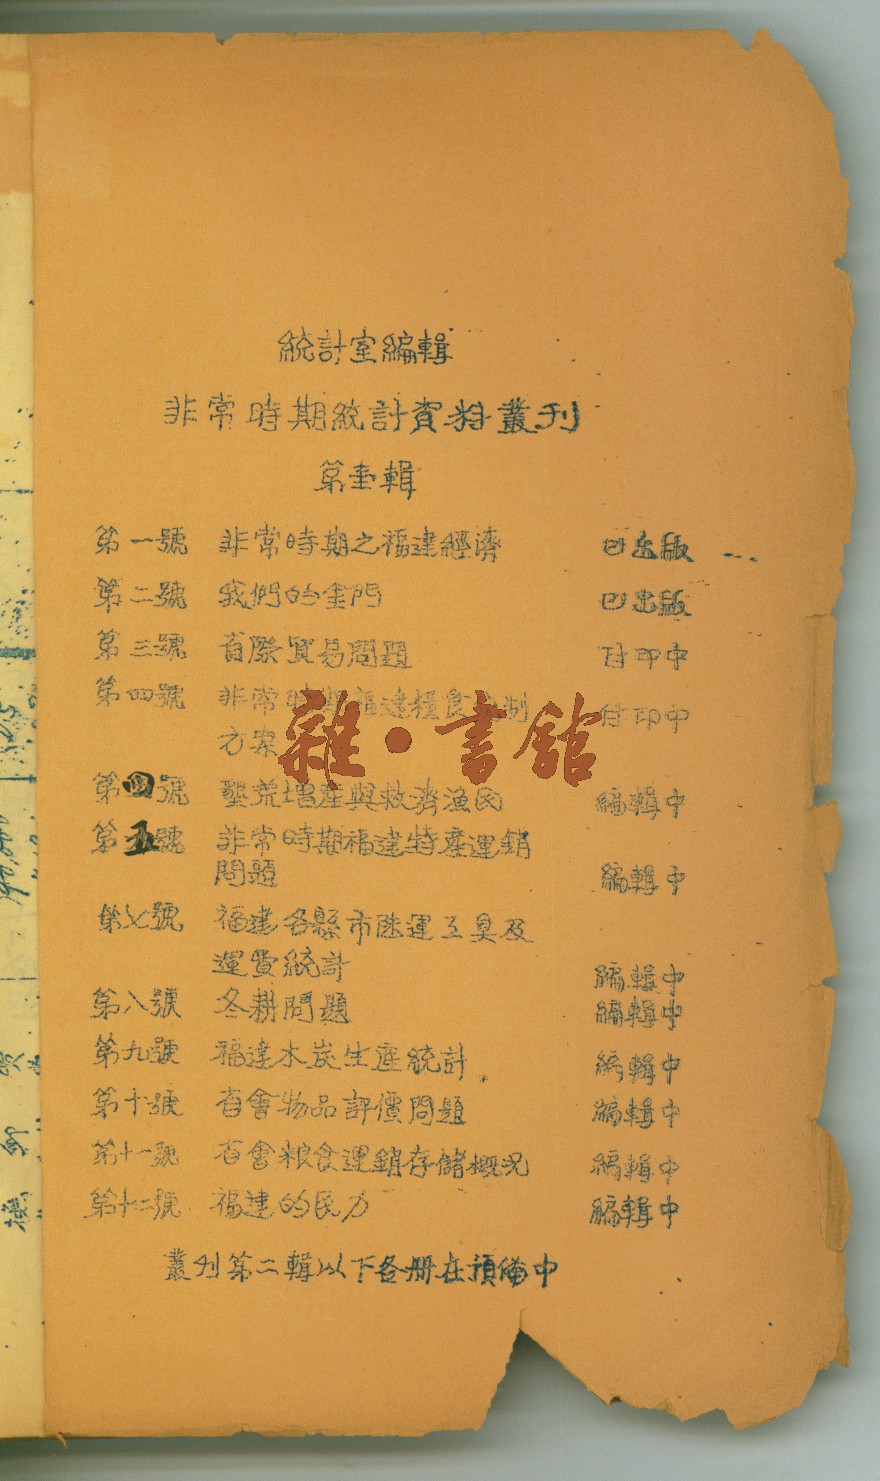 統計室編輯
非常時期統計資料叢刊
第壹輯
第一號 非常時期之福建經濟 已出版
第二號 我們的金門 已出版
第三號 省際貿易問題 付印中
第四號 非常時期福建糧食 制
方案 付印中
第四號 墾荒增產與救濟漁民 編輯中
第五號 非常時期福建特產運銷
問題 編輯中
第七號 福建各縣市陸運工具及
運費統計 編輯中
第八號 冬耕問題 編輯中
第九號 福建木炭生產統計 編輯中
第十號 省會物品評價問題 編輯中
第十一號 省會粮食運銷存儲概況 編輯中
第十二號 福建的民力 編輯中
叢刊第二輯以下各册在預備中
雜·書館